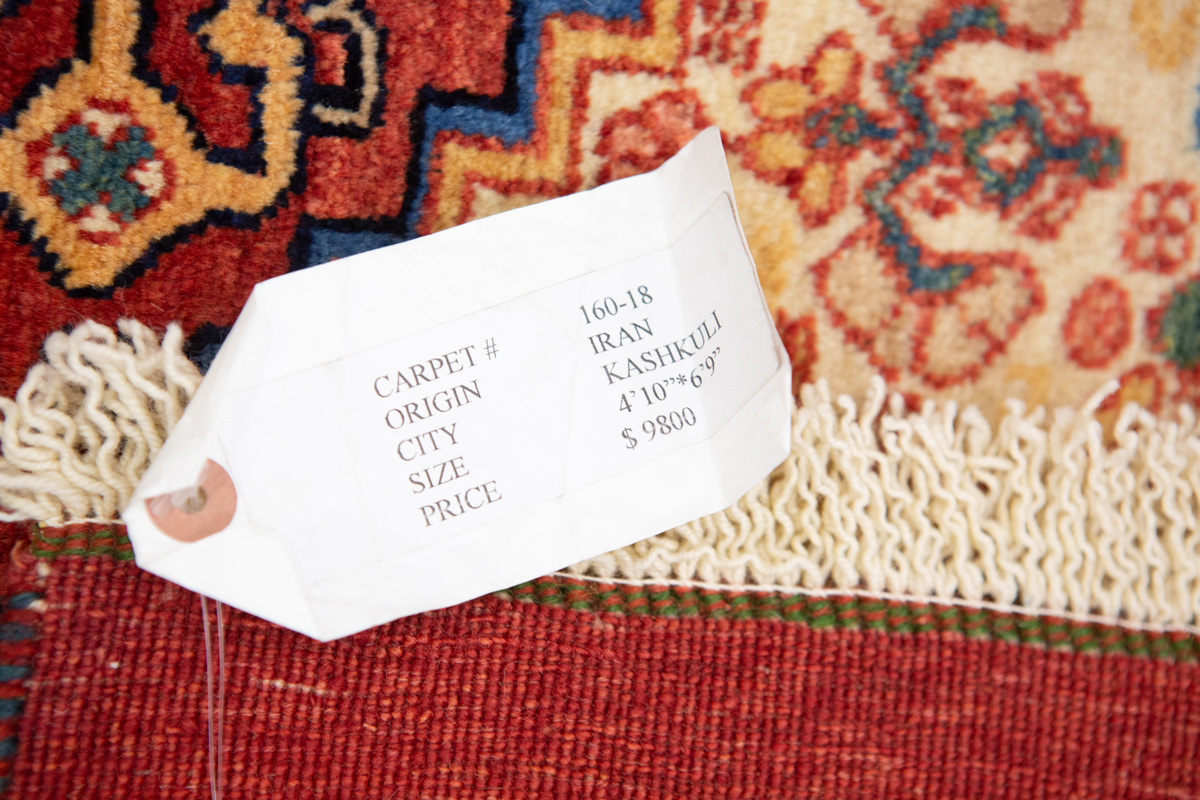 CARPET # 160-18
ORIGIN IRAN
CITY KASHKULI
SIZE 4’10”*6’9”
PRICE $ 9800